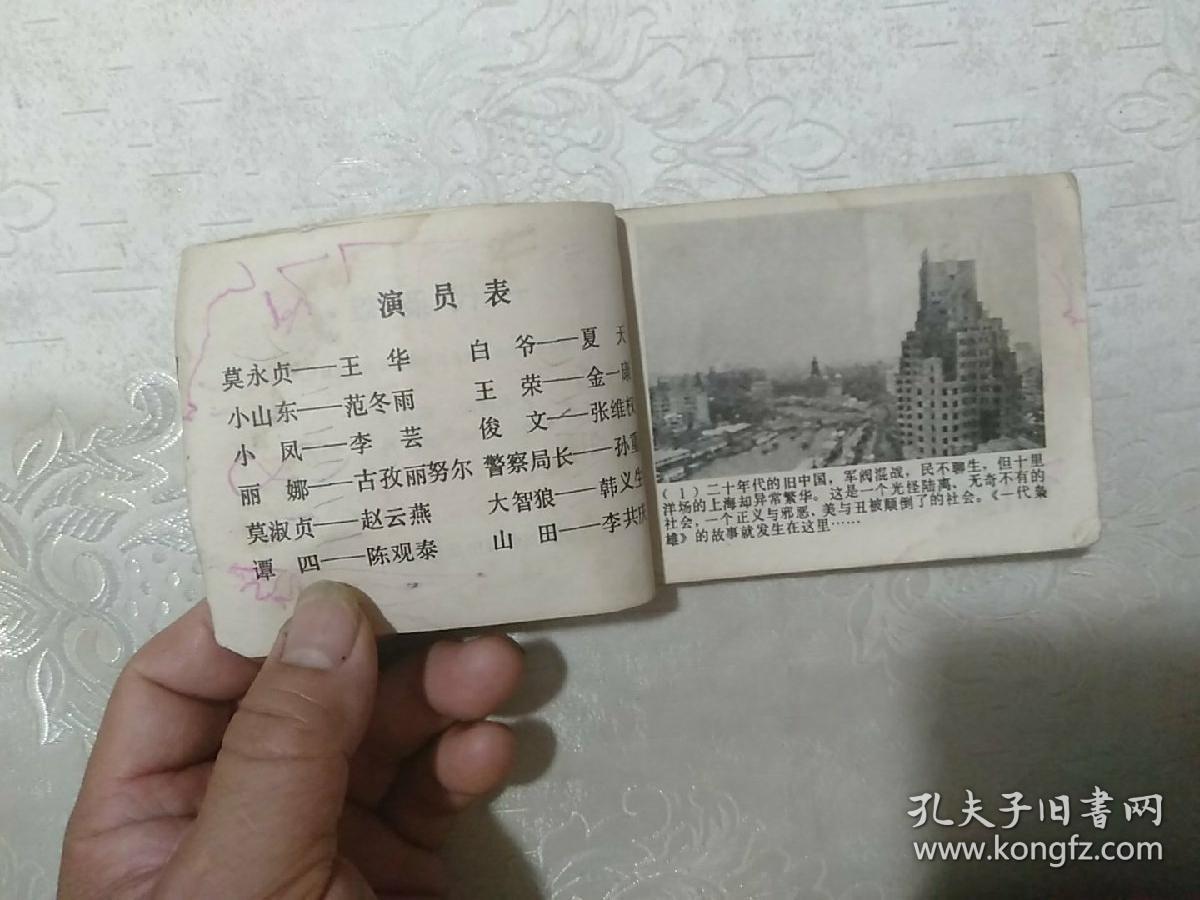 演员表
莫永贞——王 华 白 爷——夏 天
小山东——范冬雨 王 荣——金一康
小 凤——李 芸 俊 文——张维权
丽 娜——古孜丽努尔 警察局长——孙重
莫淑贞——赵云燕 大智狼——韩义生
谭 四——陈观泰 山 田——李共
(1)二十年代的旧中国，军阀混战，民不聊生，但十里
洋场的上海却异常繁华。这是一个光怪陆离、无奇不有的
社会，一个正义与邪恶、美与丑被颠倒了的社会。《一代枭
雄》的故事就发生在这里……
孔夫子旧書网
www.kongfz.com